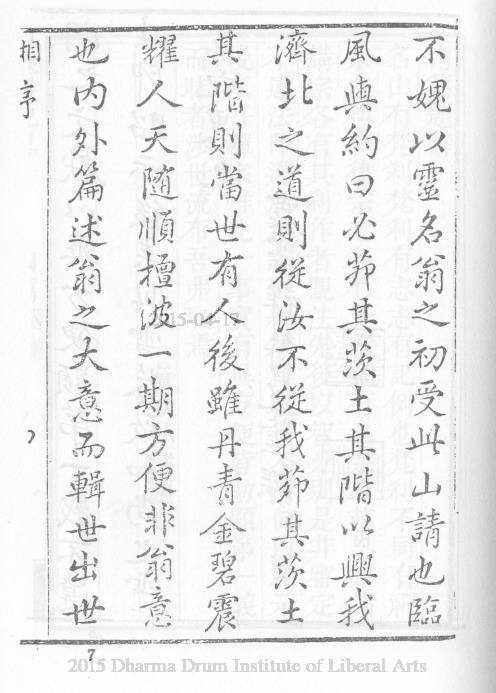 不媿以靈名翁之初受此山請也臨
風與約曰必茆其茨土其階以興我
濟北之道則從汝不從我茆其茨土
其階則當世有人後雖丹青金碧震
耀人天隨順檀波一期方便非翁意
也內外篇述翁之大意而輯世出世
相序
7
2015 Dharma Drum Institute of Liberal Arts